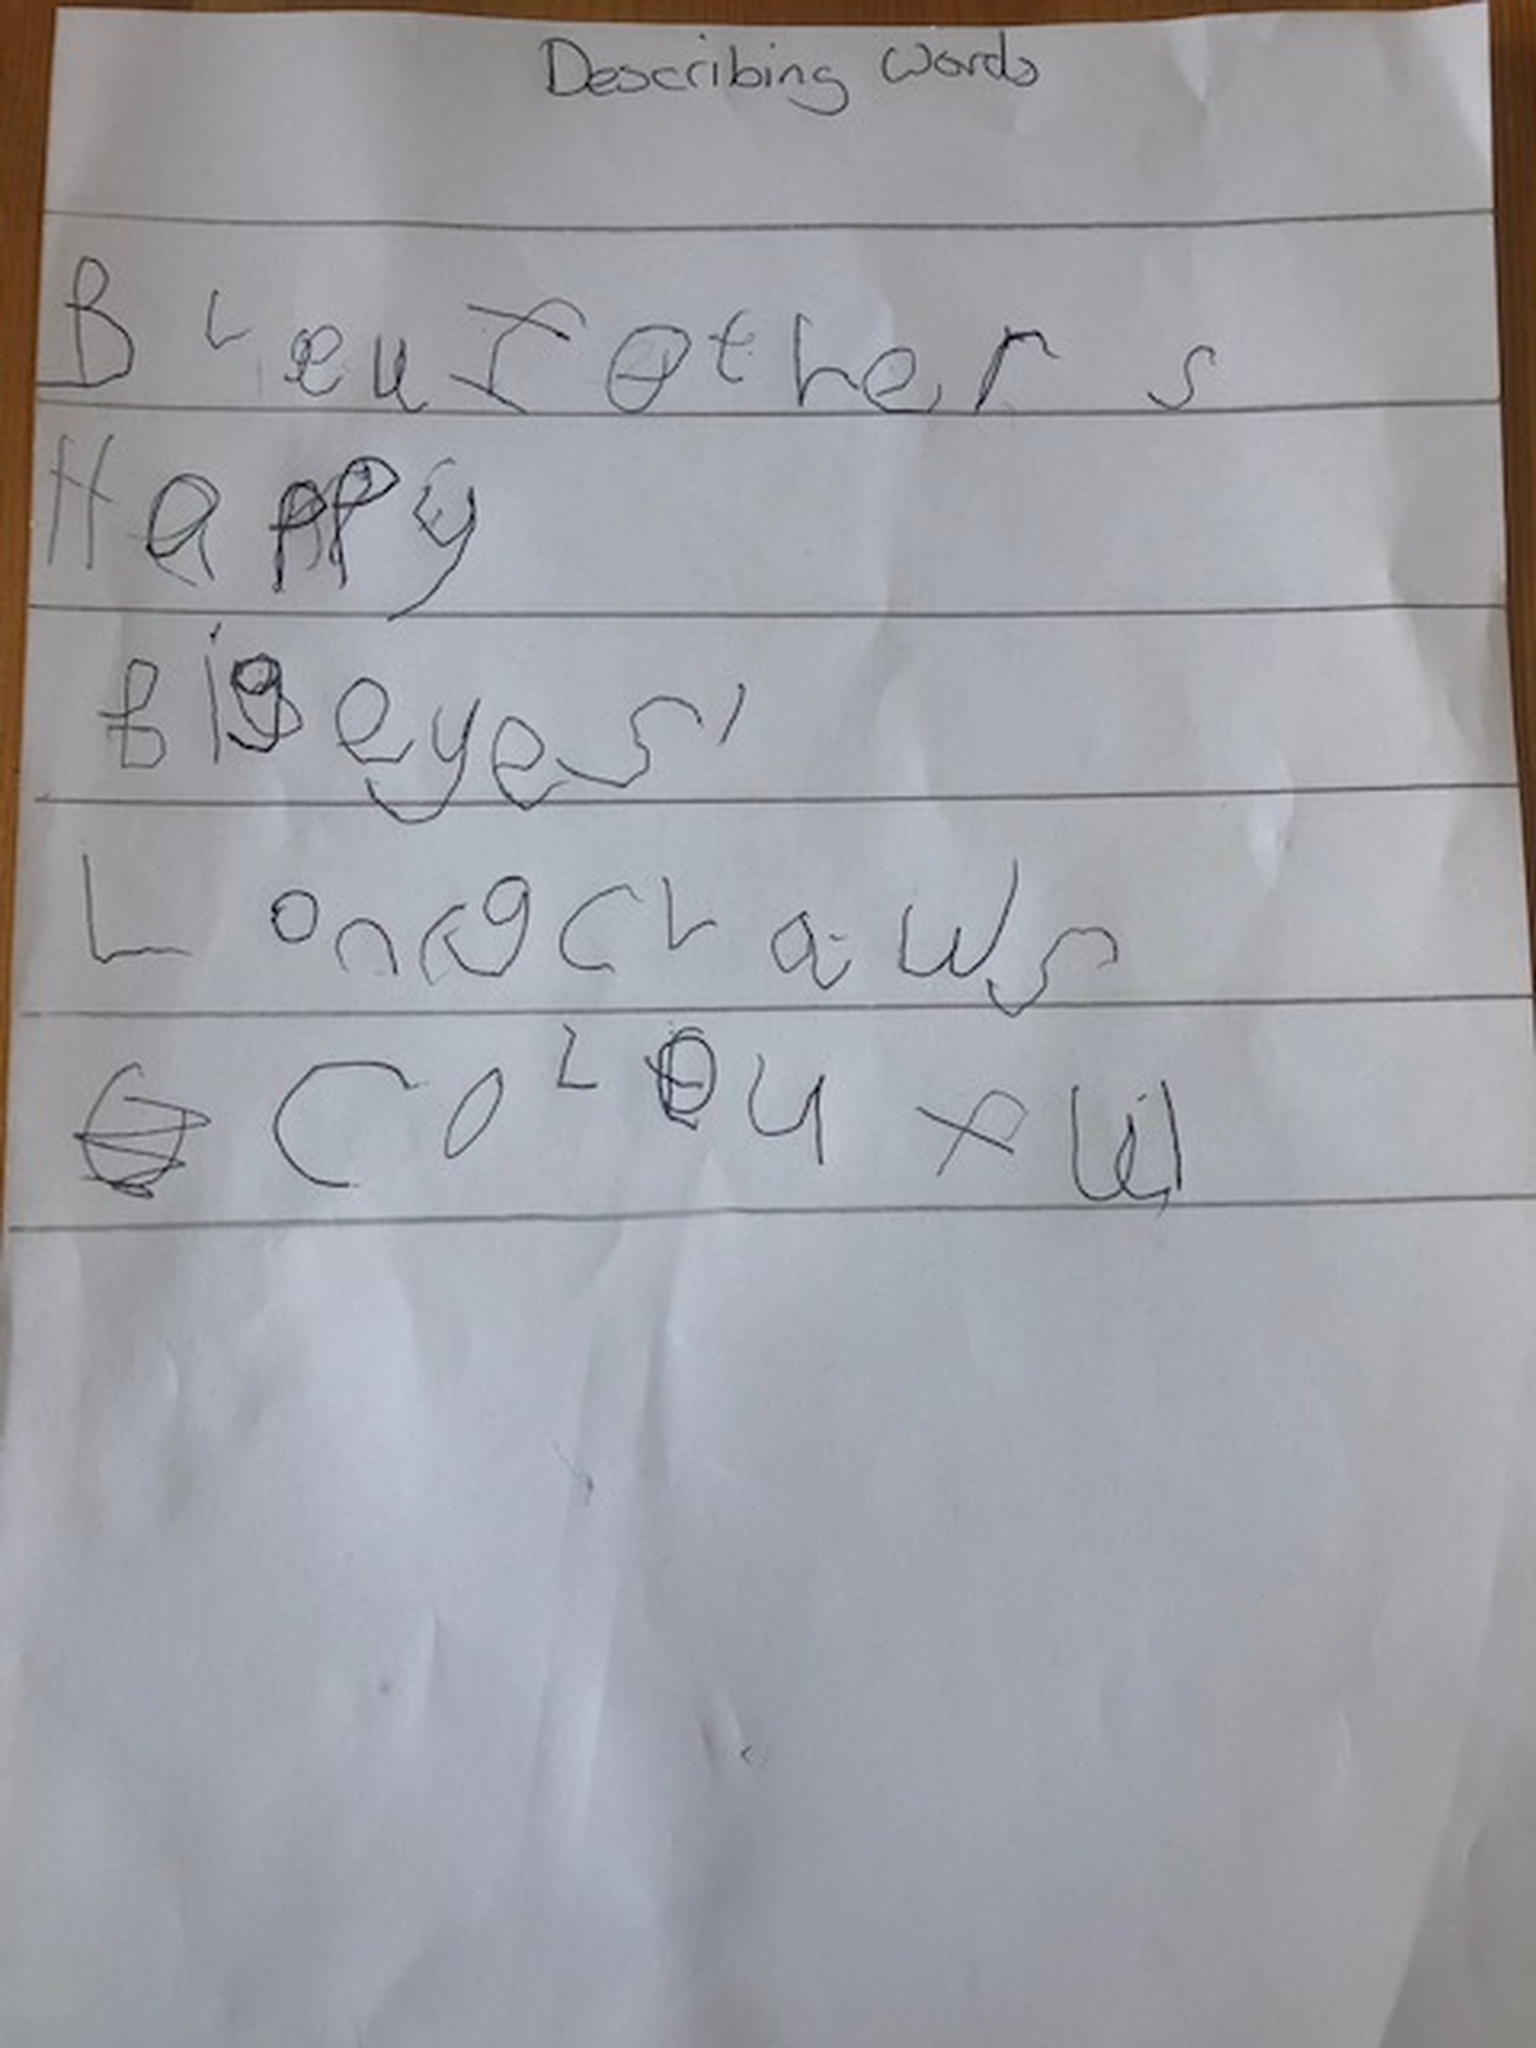 Describing Words
Bleu fothers
Happy
Big eyes
Long claws
Coleuful